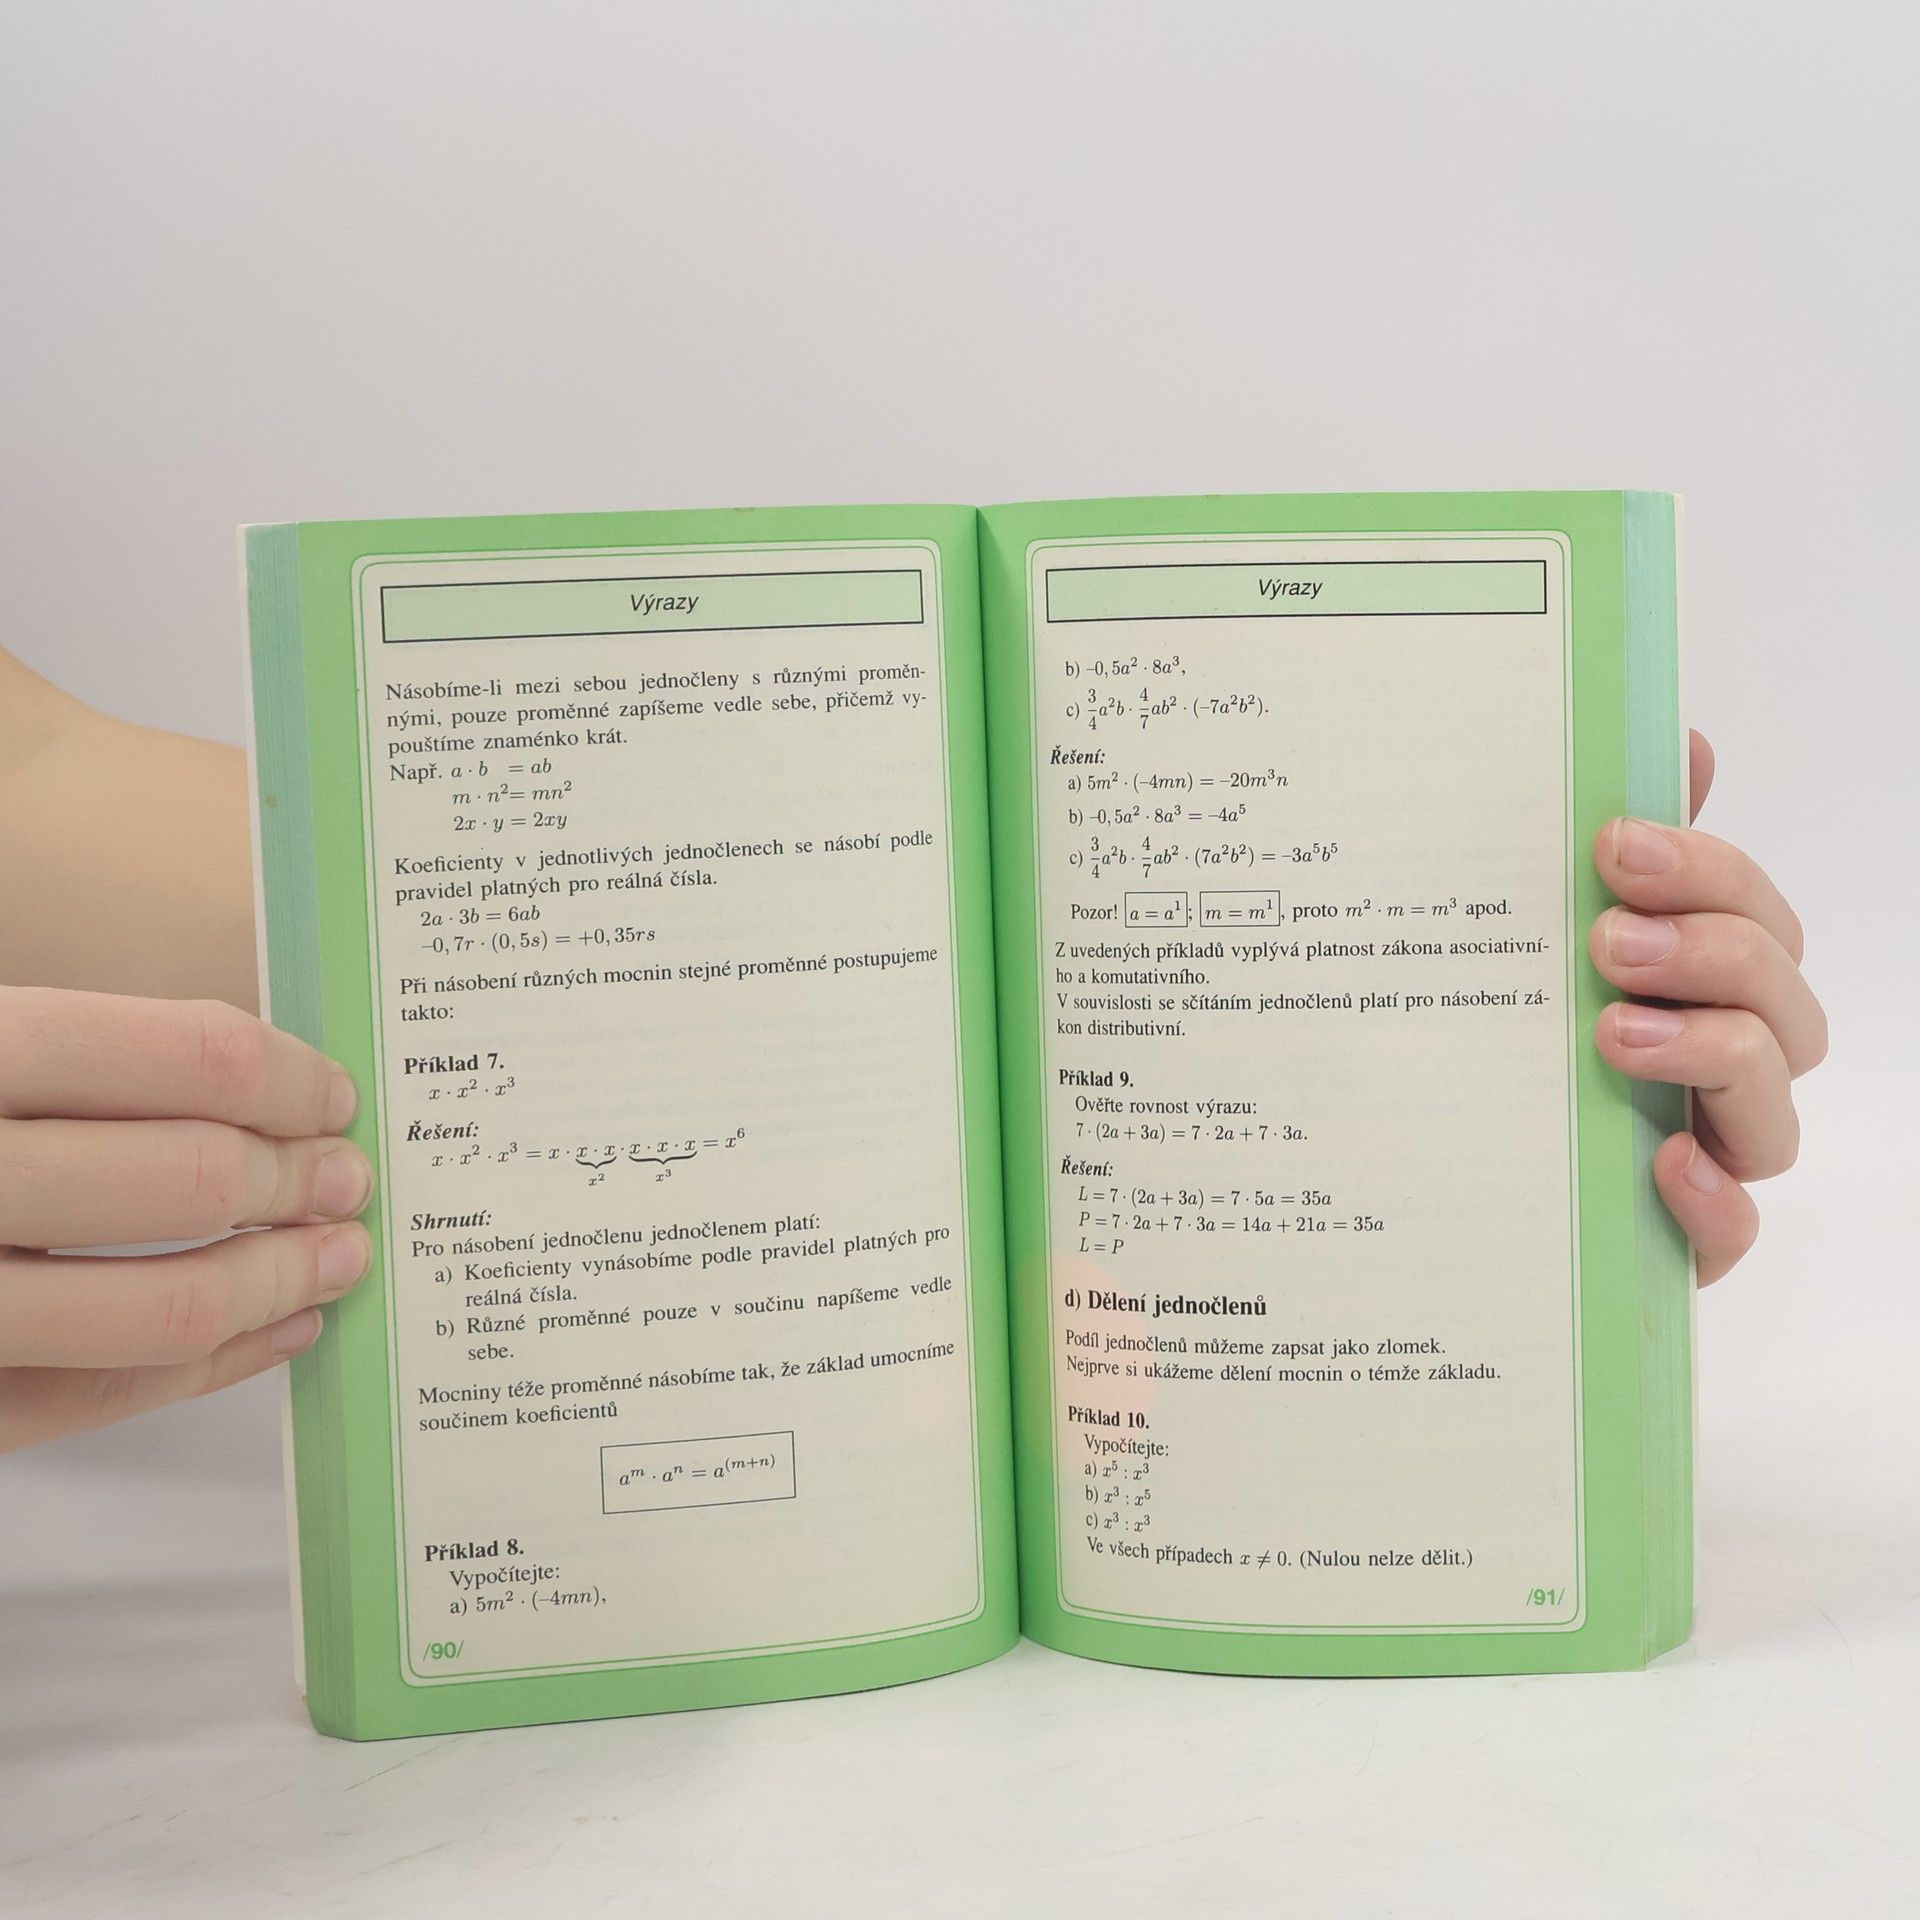 Výrazy
Násobíme-li mezi sebou jednočleny s různými proměn-
nými, pouze proměnné zapíšeme vedle sebe, přičemž vy-
pouštíme znaménko krát.
Např. a · b = ab
m · n² = mn²
2x · y = 2xy
Koeficienty v jednotlivých jednočlenech se násobí podle
pravidel platných pro reálná čísla.
2a · 3b = 6ab
–0,7r · (0,5s) = +0,35rs
Při násobení různých mocnin stejné proměnné postupujeme
takto:
Příklad 7.
x · x² · x³
Řešení:
x · x² · x³ = x · x · x · x · x · x = x⁶
x² x³
Shrnutí:
Pro násobení jednočlenu jednočlenem platí:
a) Koeficienty vynásobíme podle pravidel platných pro
reálná čísla.
b) Různé proměnné pouze v součinu napíšeme vedle
sebe.
Mocniny téže proměnné násobíme tak, že základ umocníme
součinem koeficientů
aᵐ · aⁿ = a⁽ᵐ⁺ⁿ⁾
Příklad 8.
Vypočítejte:
a) 5m² · (–4mn),
/90/
Výrazy
b) –0,5a² · 8a³,
c) 3/4 a²b · 4/7 ab² · (–7a²b²).
Řešení:
a) 5m² · (–4mn) = –20m³n
b) –0,5a² · 8a³ = –4a⁵
c) 3/4 a²b · 4/7 ab² · (7a²b²) = –3a⁵b⁵
Pozor! a = a¹; m = m¹, proto m² · m = m³ apod.
Z uvedených příkladů vyplývá platnost zákona asociativní-
ho a komutativního.
V souvislosti se sčítáním jednočlenů platí pro násobení zá-
kon distributivní.
Příklad 9.
Ověřte rovnost výrazu:
7 · (2a + 3a) = 7 · 2a + 7 · 3a.
Řešení:
L = 7 · (2a + 3a) = 7 · 5a = 35a
P = 7 · 2a + 7 · 3a = 14a + 21a = 35a
L = P
d) Dělení jednočlenů
Podíl jednočlenů můžeme zapsat jako zlomek.
Nejprve si ukážeme dělení mocnin o témže základu.
Příklad 10.
Vypočítejte:
a) x⁵ : x³
b) x³ : x⁵
c) x³ : x³
Ve všech případech x ≠ 0. (Nulou nelze dělit.)
/91/